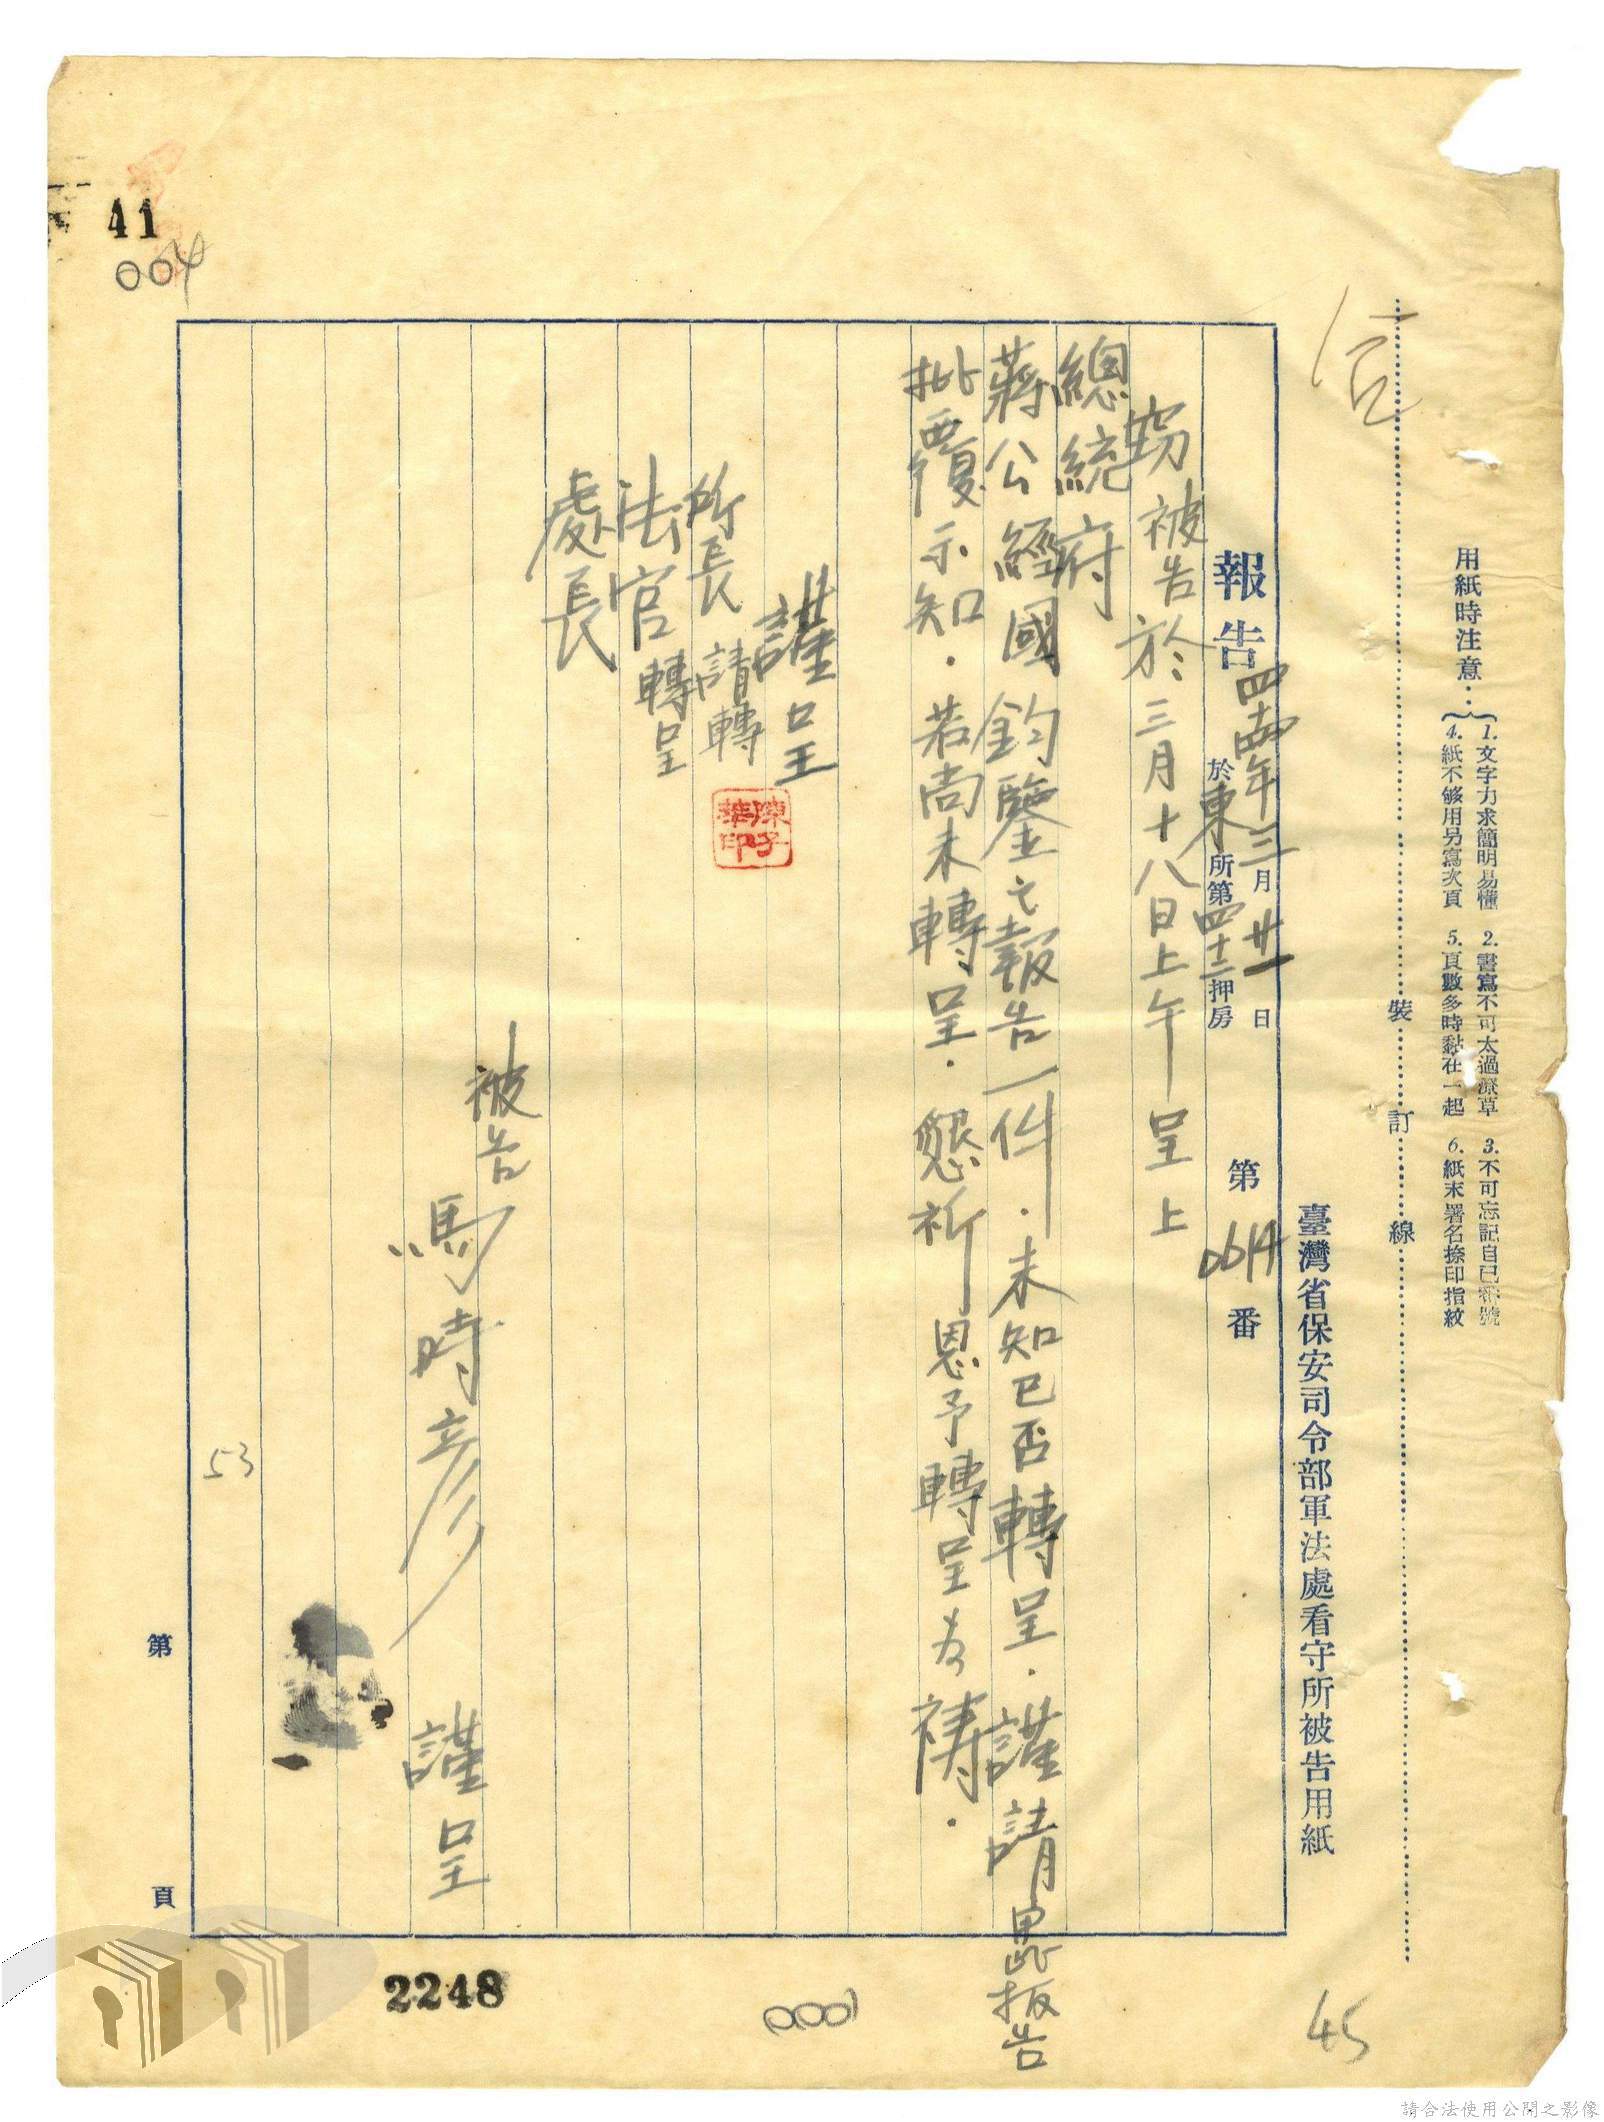 用紙時注意：
1. 文字力求簡明易懂 2. 書寫不可太過潦草 3. 不可忘記自己番號
4. 紙不够用另寫次頁 5. 頁數多時黏在一起 6. 紙末署名捺印指紋
裝 訂 線
臺灣省保安司令部軍法處看守所被告用紙
報告 四十四年三月廿一日
於東所第四十二押房 第0614番
竊被告於三月十八日上午呈上
總統府
蔣公經國鈞鑒之報告一件．未知已否轉呈．謹請惠報告
批覆示知．若尚未轉呈．懇祈恩予轉呈為禱．
謹呈
所長 請轉
法官 轉呈
處長
陳子華印
被告
馬時彥 謹呈
第 頁
41
004
53
2248
45
請合法使用公開之影像